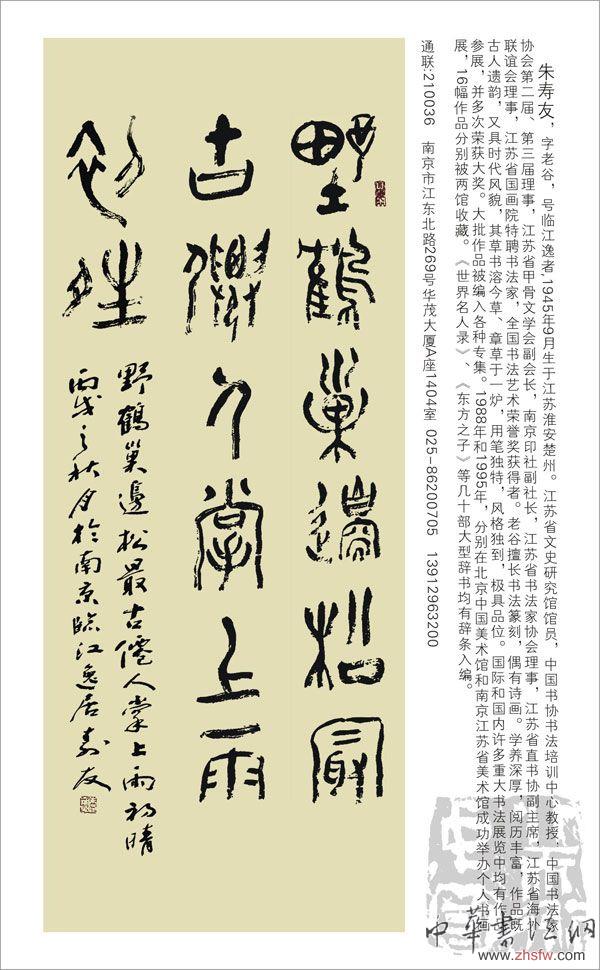 朱寿友，字老谷，号临江逸者,1945年9月生于江苏淮安楚州。江苏省文史研究馆馆员，中国书协书法培训中心教授，中国书法家
协会第二届、第三届理事，江苏省甲骨文学会副会长，南京印社副社长，江苏省书法家协会理事，江苏省直书协副主席，江苏省海外
联谊会理事，江苏省国画院特聘书法家，全国书法艺术荣誉奖获得者。老谷擅长书法篆刻，偶有诗画。学养深厚，阅历丰富，作品既
古人遗韵，又具时代风貌，其草书溶今草、章草于一炉，用笔独特，风格独到，极具品位。国际和国内许多重大书法展览中均有作品
参展，并多次荣获大奖。大批作品被编入各种专集。1988年和1995年，分别在北京中国美术馆和南京江苏省美术馆成功举办个人书画
展，16幅作品分别被两馆收藏。《世界名人录》、《东方之子》等几十部大型辞书均有辞条入编。
通联:210036 南京市江东北路269号华茂大厦A座1404室 025-86200705 13912963200
野鶴巢邊松最
古僊人掌上雨
初晴
野鶴巢邊松最古僊人掌上雨初晴
丙戌之秋月於南京臨江逸居壽友
中華書法網
www.zhsfw.com